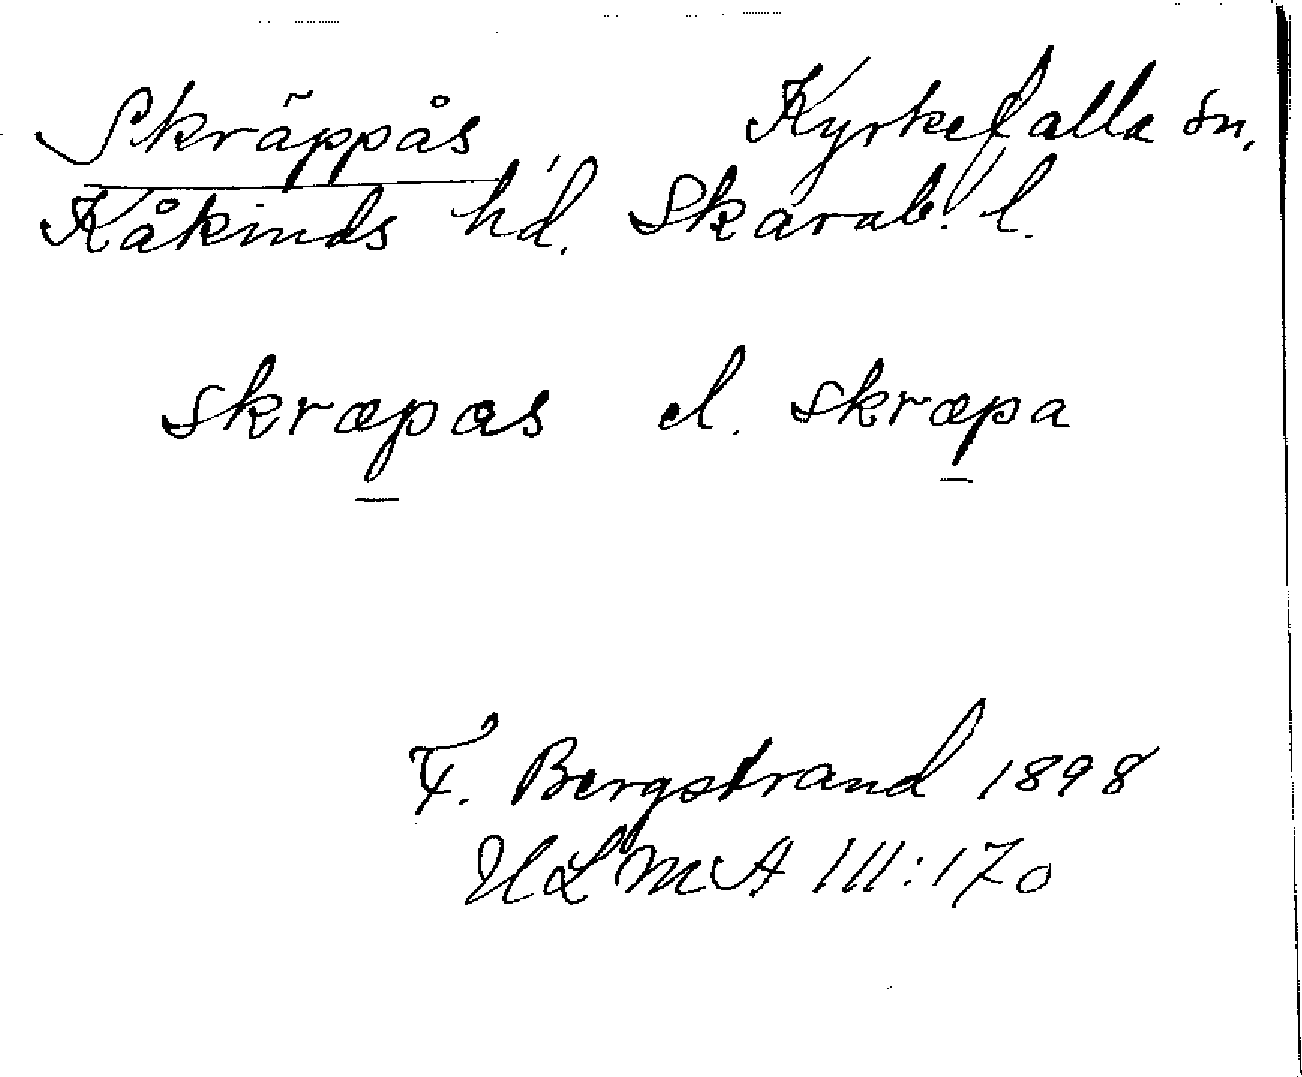 Skräppås Kyrkefalla sn.
Kåkinds hd. Skarab. l.
skræpas el. skræpa
F. Bergstrand 1898
ULMA III:170